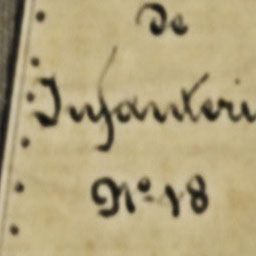 de
Infanteri
Nº 18